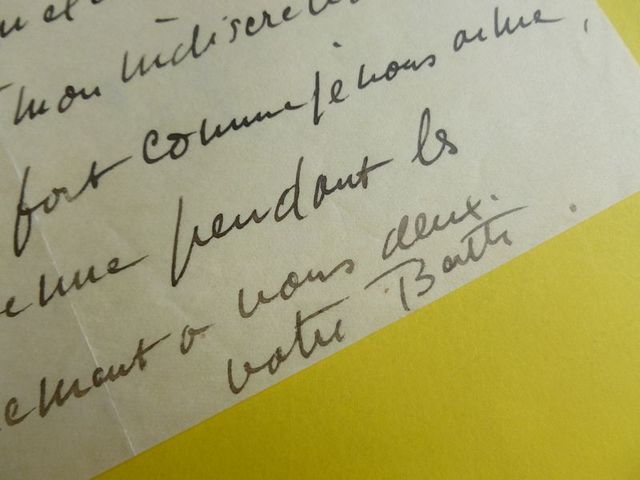 mon indiscret
fort comme je vous aime,
pendant les
ement a vous deux.
votre Barth